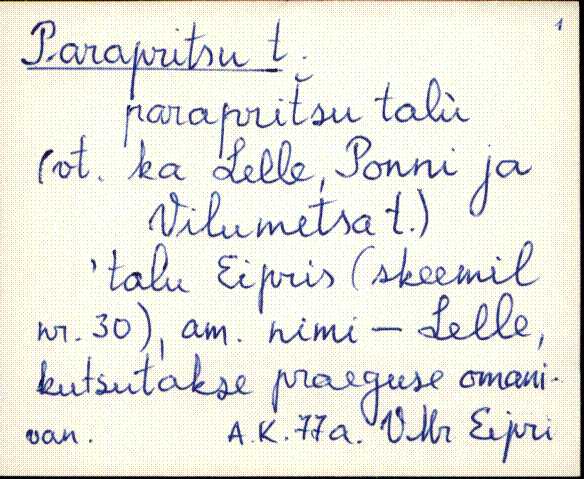 1
Parapritsu t.
parapriťsu talù
(vt. ka Lelle, Ponni ja
Vilumetsa t.)
'talu Eipris (skeemil
nr. 30), am. nimi – Lelle,
kutsutakse praeguse omani-
van. A.K. 77a. VMr Eipri